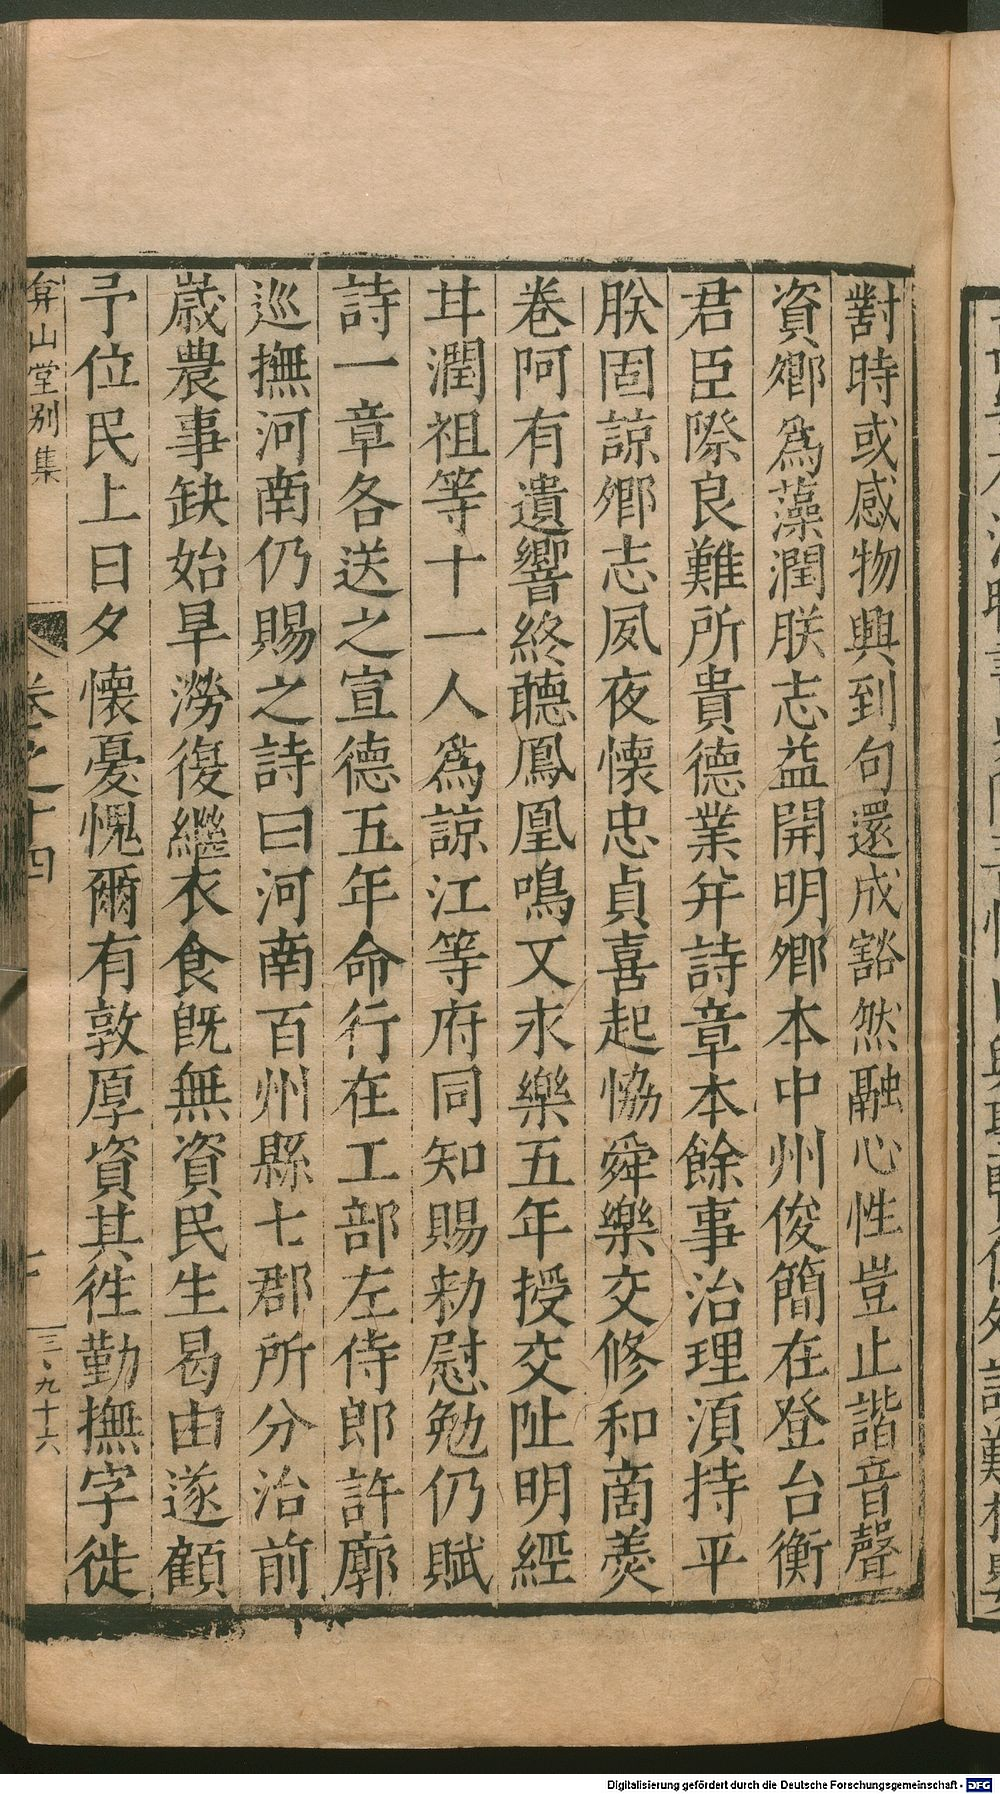 對時或感物興到句還成豁然融心性豈止諧音聲
資鄉爲藻潤朕志益開明鄉本中州俊簡在登台衡
君臣際良難所貴德業并詩章本餘事治理須持平
朕固諒鄉志夙夜懷忠貞喜起恊舜樂交修和啇羮
卷阿有遺響終聽鳳凰鳴又永樂五年授交阯明經
甘潤祖等十一人爲諒江等府同知賜勑慰勉仍賦
詩一章各送之宣德五年命行在工部左侍郎許廓
巡撫河南仍賜之詩曰河南百州縣七郡所分治前
歳農事缺始旱澇復繼衣食旣無資民生曷由遂顧
予位民上日夕懷憂愧爾有敦厚資其徃勤撫字徙
弇山堂别集
卷之十四
三、九十六
Digitalisierung gefördert durch die Deutsche Forschungsgemeinschaft - DFG